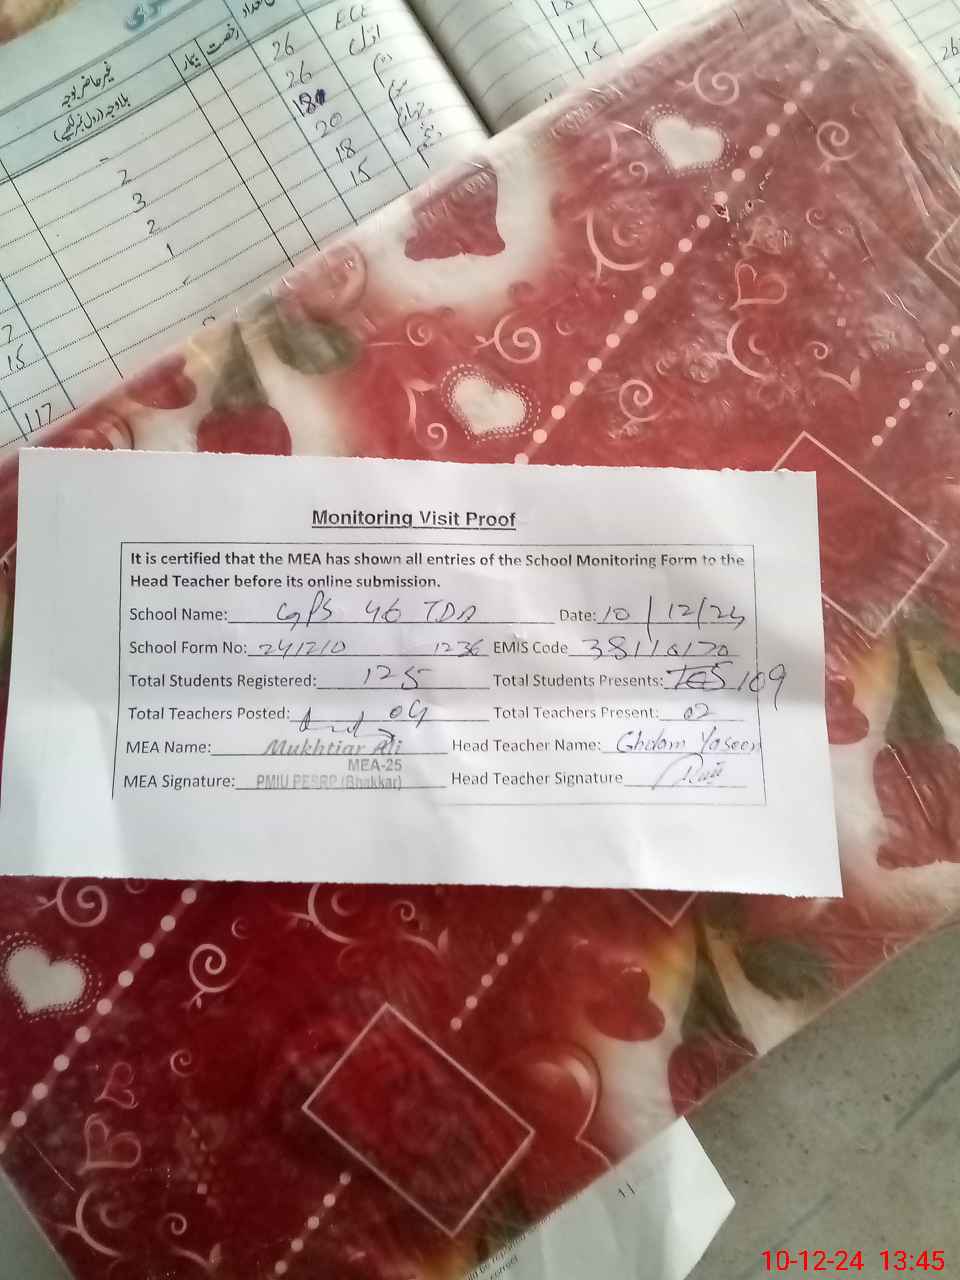 غیر حاضر بوجہ
بیمار
رخصت
بلاوجہ (رول نمبر لکھیے)
26 ECE
26 اول
18
2 20
3 18
2 15
1
15
117
17
15
Monitoring Visit Proof
It is certified that the MEA has shown all entries of the School Monitoring Form to the
Head Teacher before its online submission.
School Name: GPS 46 TDA Date: 10/12/24
School Form No: 241210 1236 EMIS Code 38110170
Total Students Registered: 125 Total Students Presents: 109
Total Teachers Posted: 04 Total Teachers Present: 02
MEA Name: Mukhtiar Ali Head Teacher Name: Gholam Yaseen
MEA-25
MEA Signature: PMIU PESRP (Bhakkar) Head Teacher Signature
10-12-24 13:45